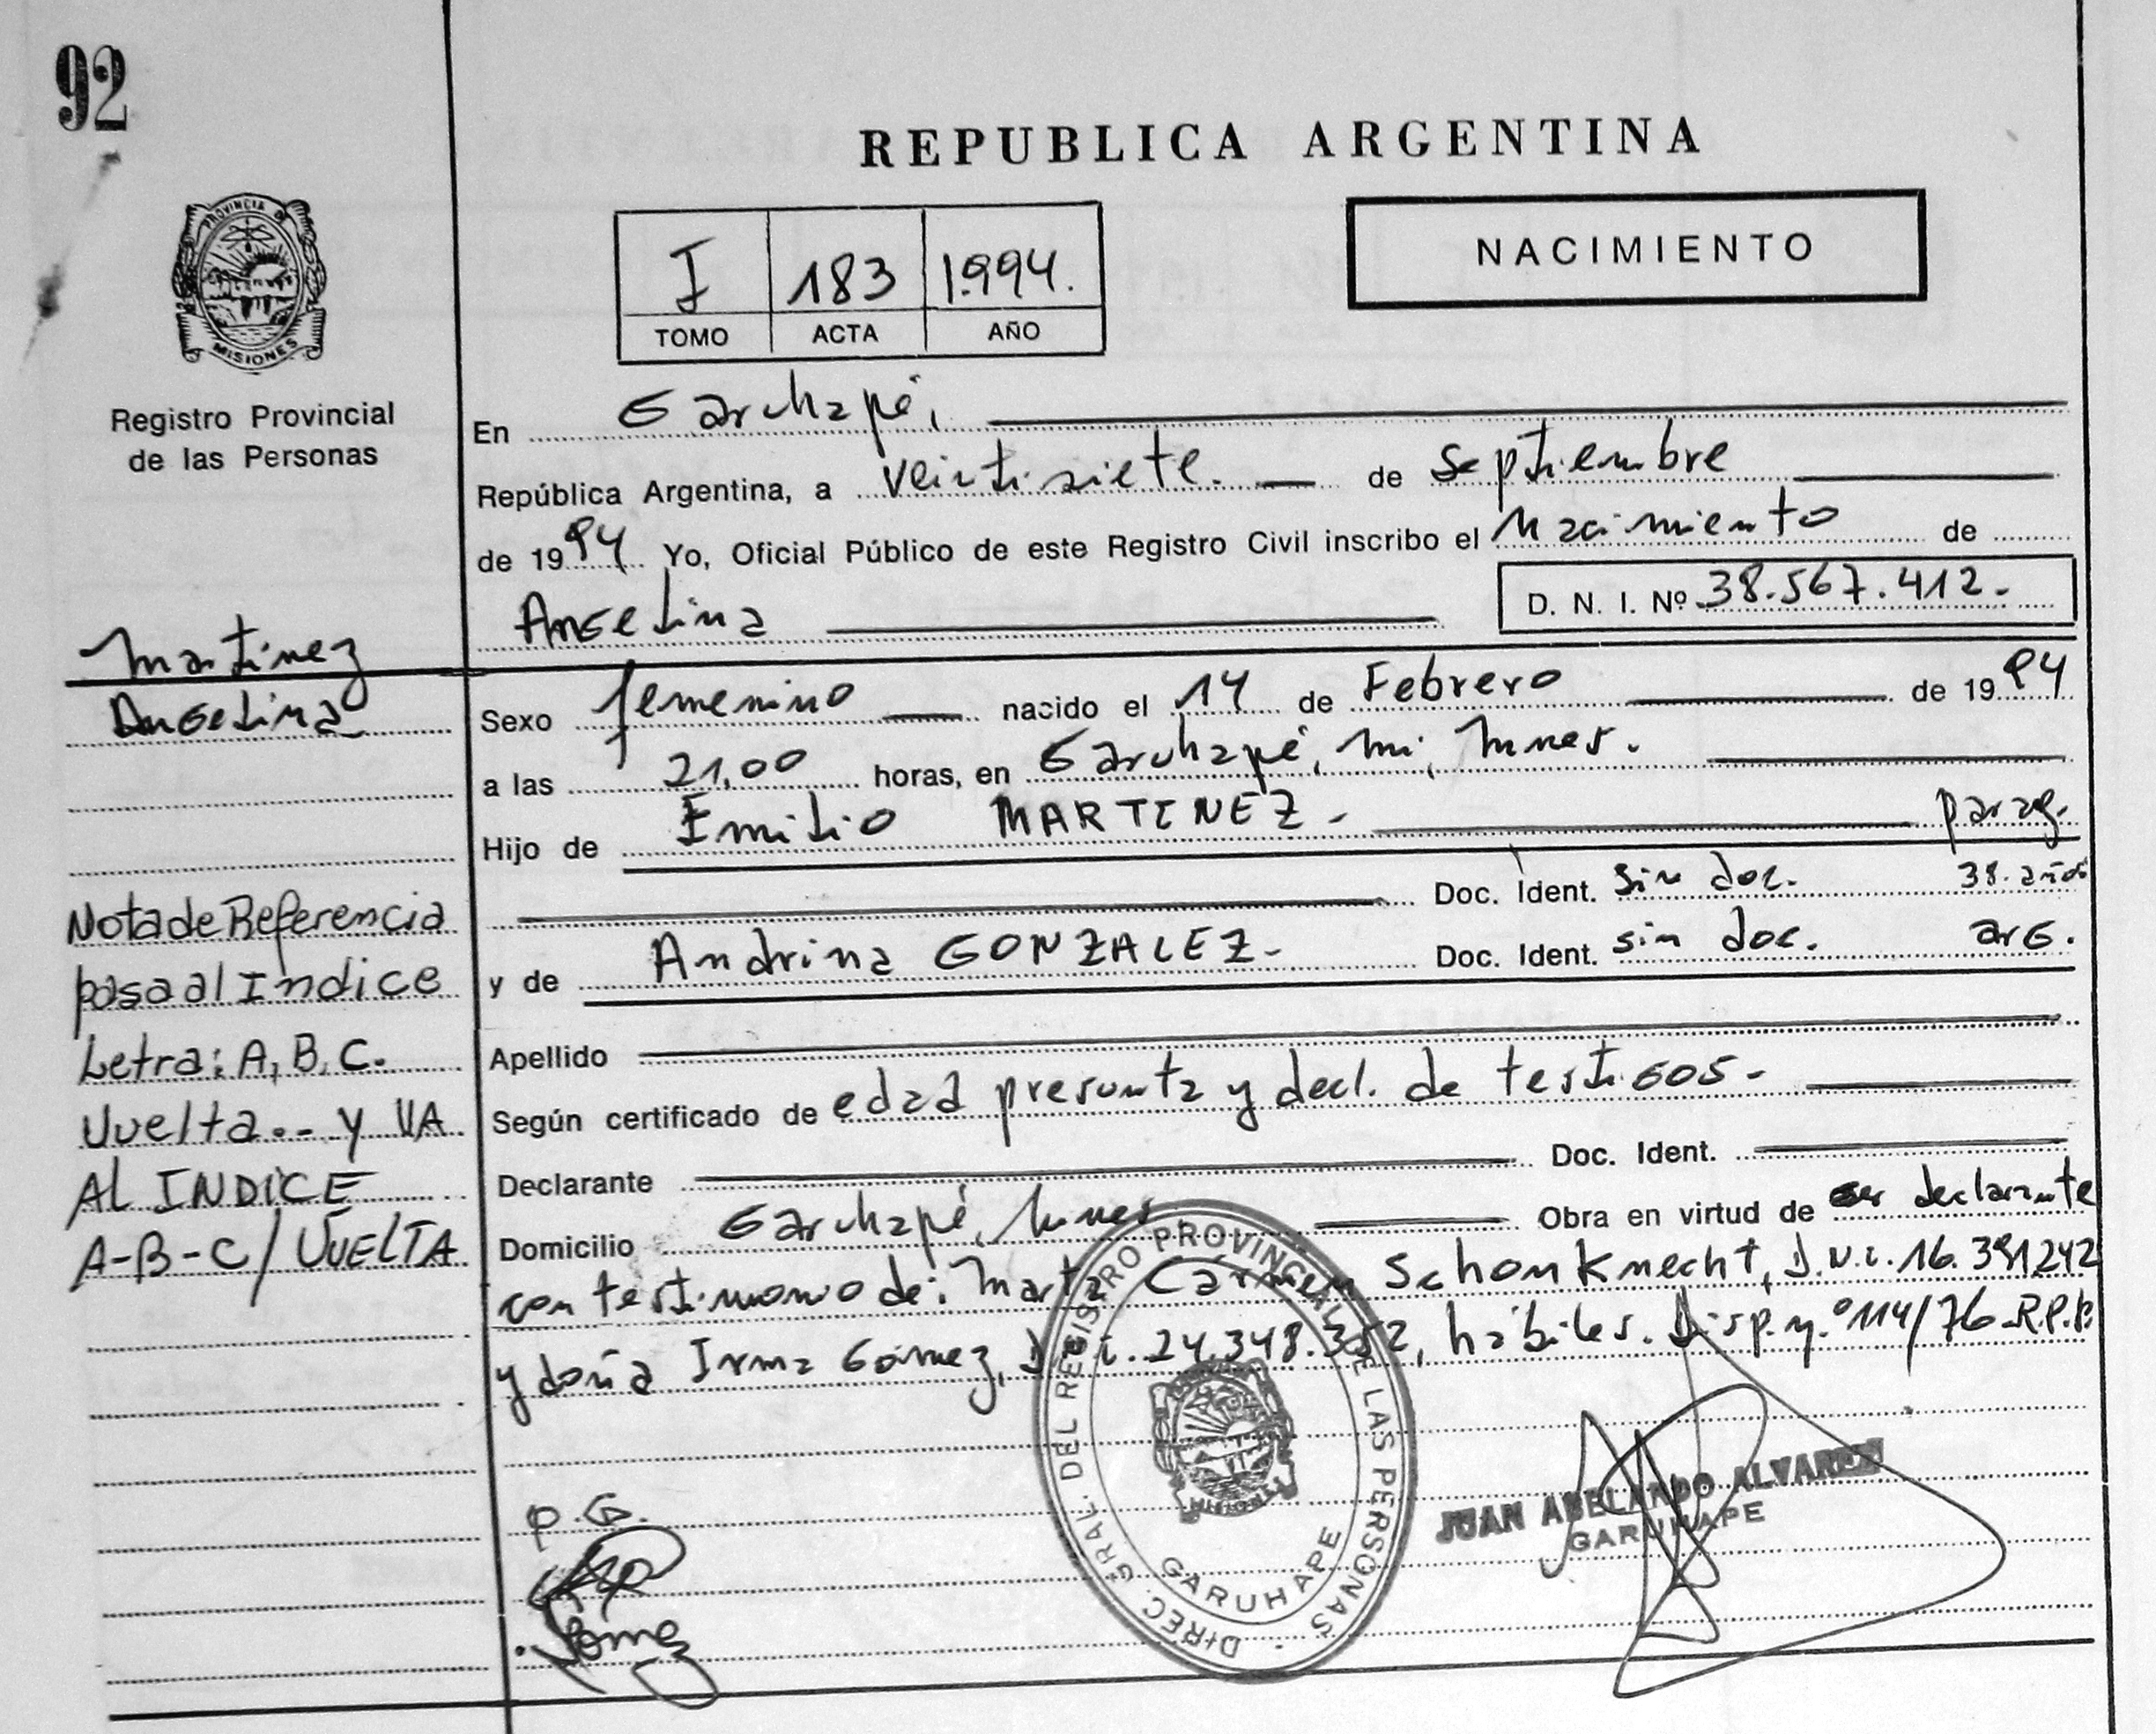 92
REPUBLICA ARGENTINA
NACIMIENTO
I 183 1.994.
TOMO ACTA AÑO
PROVINCIA D
MISIONES
Registro Provincial
de las Personas
En Garuhapé,
República Argentina, a veintisiete. de septiembre
de 1994 Yo, Oficial Público de este Registro Civil inscribo el Nacimiento de
Angelina D. N. I. Nº 38.567.412.-
Martinez
Angelina
Sexo femenino nacido el 14 de Febrero de 1994
a las 21,00 horas, en Garuhapé, Mnes.
Hijo de Emilio MARTINEZ.- parag.
Doc. Ident. sin doc. 38. años
y de Andrina GONZALEZ.- Doc. Ident. sin doc. arg.
Apellido
Según certificado de edad presunta y decl. de testigos.-
Declarante Doc. Ident.
Domicilio Garuhapé, Mnes Obra en virtud de ser declarante
con testimonio de: Marta Carmen Schonknecht, D.N.I. 16.391242
y doña Irma Gómez, D.N.I. 24.348.352, hábiles. Disp. N.º 114/76-R.P.P.
Nota de Referencia
pasa al Indice
Letra: A, B, C.
Vuelta... y VA
AL INDICE
A-B-C/VUELTA
P.G.
Gomez
DIREC. GRAL. DEL REGISTRO PROVINCIAL DE LAS PERSONAS
MISIONES
GARUHAPE
JUAN ABELANDO ALVAREZ
GARUHAPE